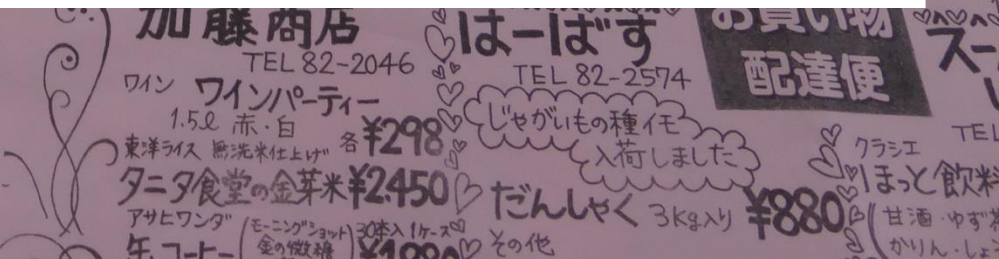 加藤商店
TEL 82-2046
ワイン ワインパーティー
1.5ℓ 赤・白 各¥298
東洋ライス 無洗米仕上げ
タニタ食堂の金芽米 ¥2.450
アサヒワンダ
缶コーヒー (モーニングショット 30本入1ケース
金の微糖
はーばす
TEL 82-2574
じゃがいもの種イモ
入荷しました
だんしゃく 3kg入り ¥880
その他
お買い物
配達便
スー
TEL
クラシエ
ほっと飲料
(甘酒・ゆず
かりん・しょ